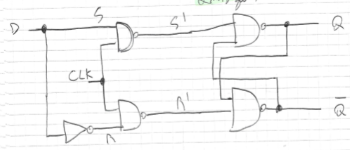 D
S
S'
Q
CLK
R
R'
Q̅